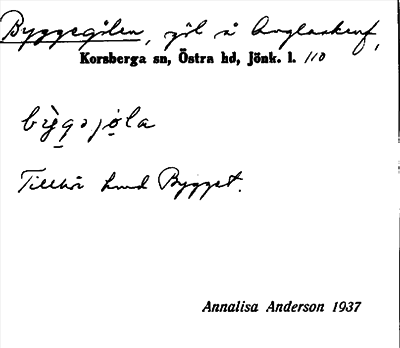 Byggegölen, göl å Anglaskruf,
Korsberga sn, Östra hd, Jönk. l. 110
bỳgəjo̤la
Tillhör hmd Bygget.
Annalisa Anderson 1937